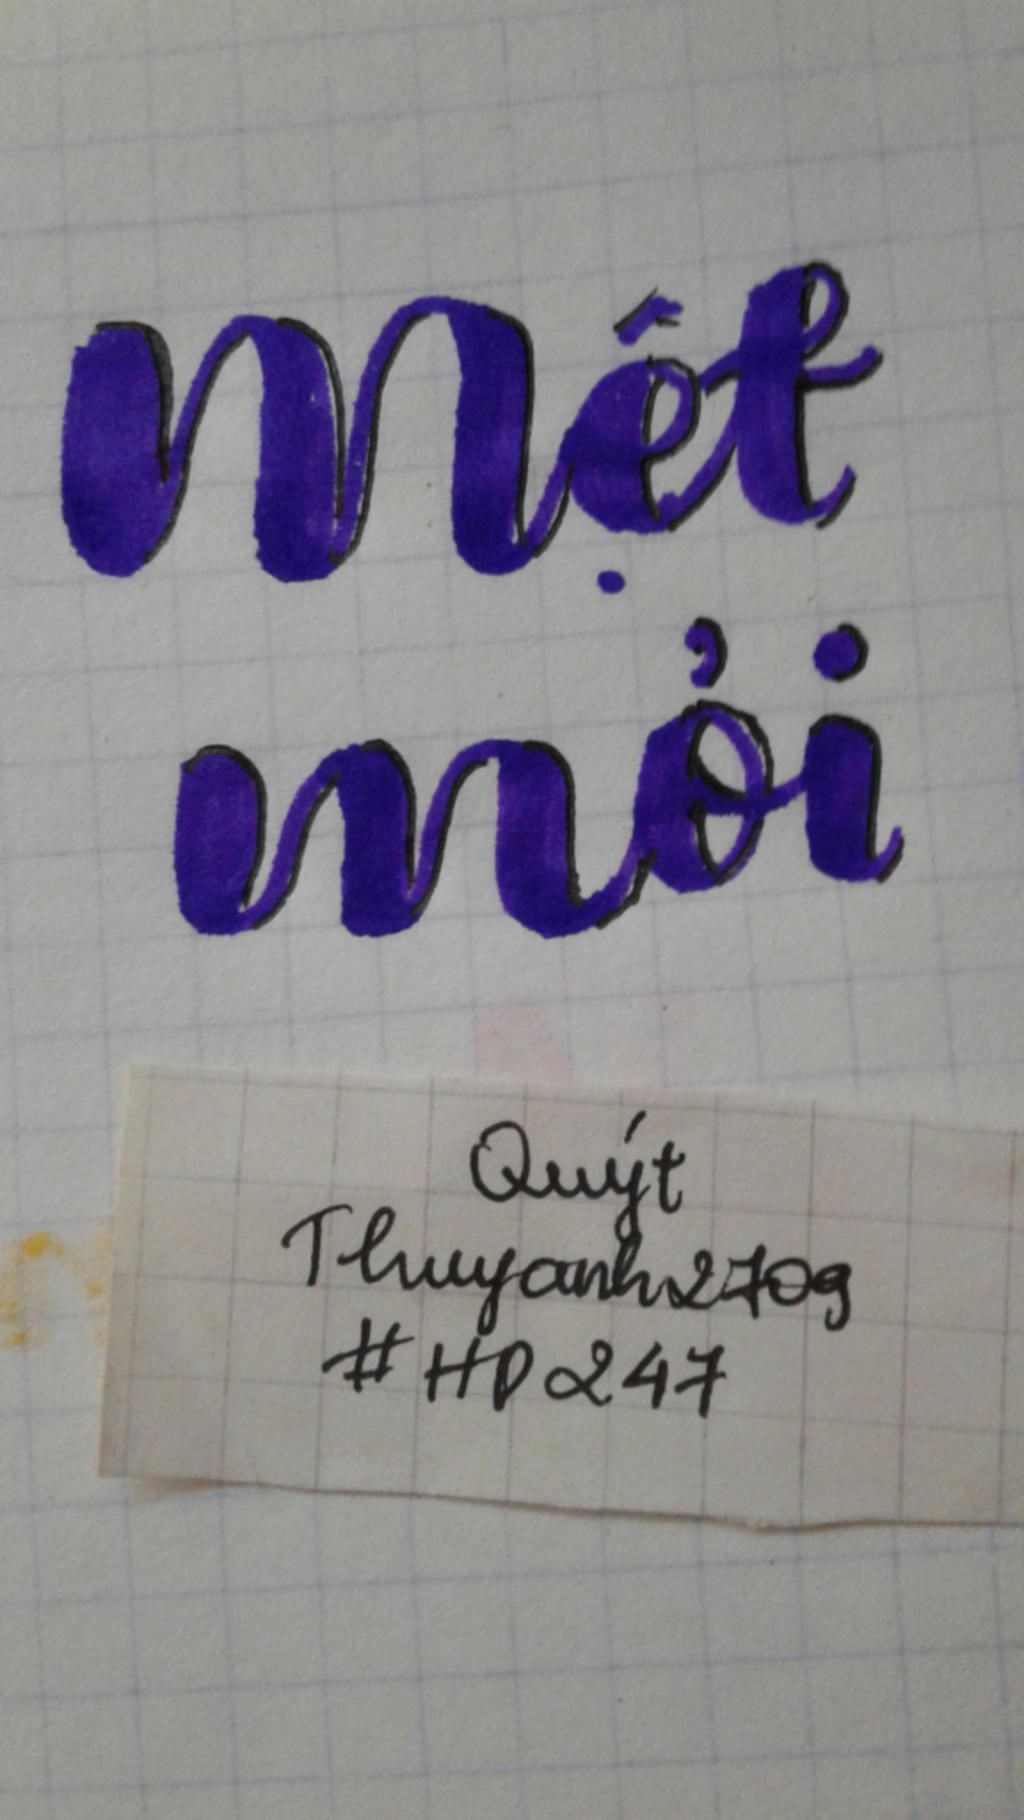 Mệt
mỏi
Quýt
Thuyanh2709
#HD247